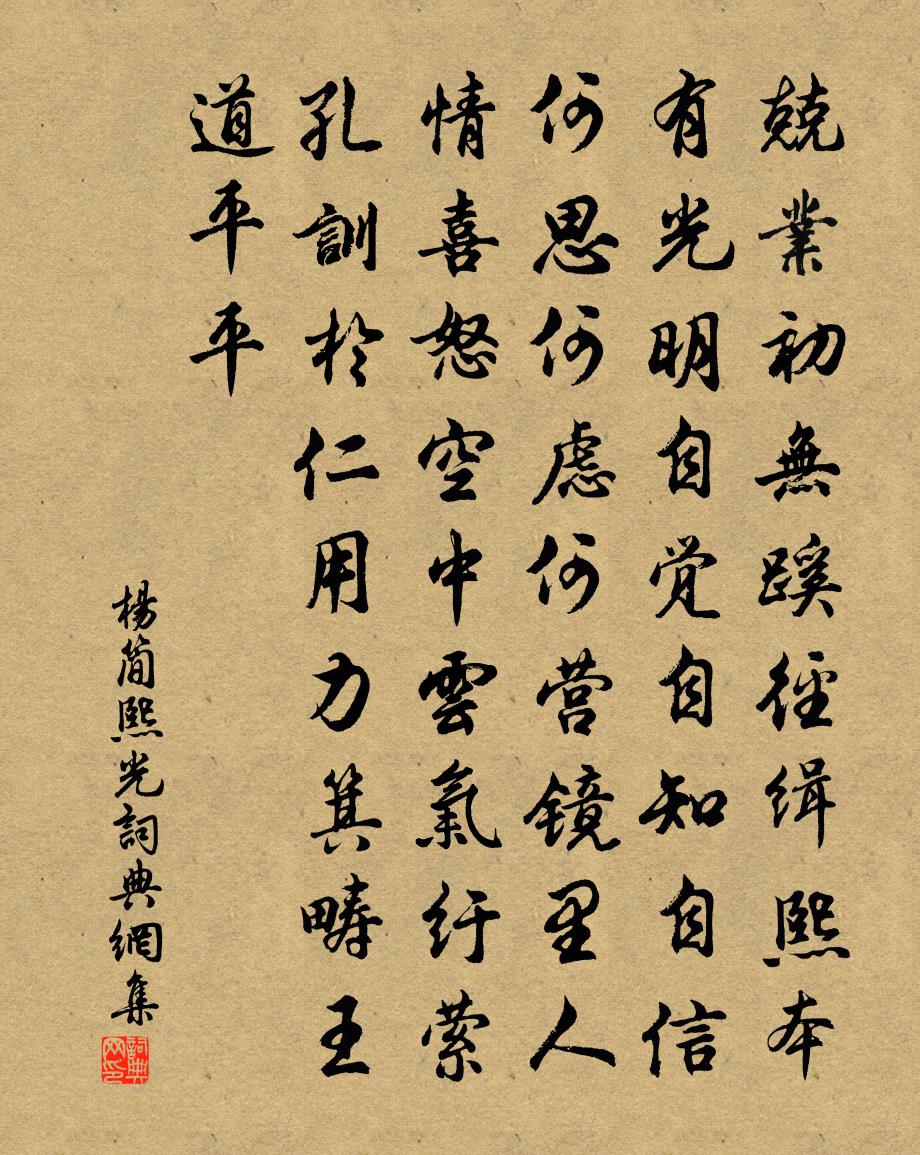 兢業初無蹊徑緝熙本
有光明自覺自知自信
何思何慮何營鏡里人
情喜怒空中雲氣紆縈
孔訓於仁用力箕疇王
道平平
楊簡熙光詞典網集
詞典網印